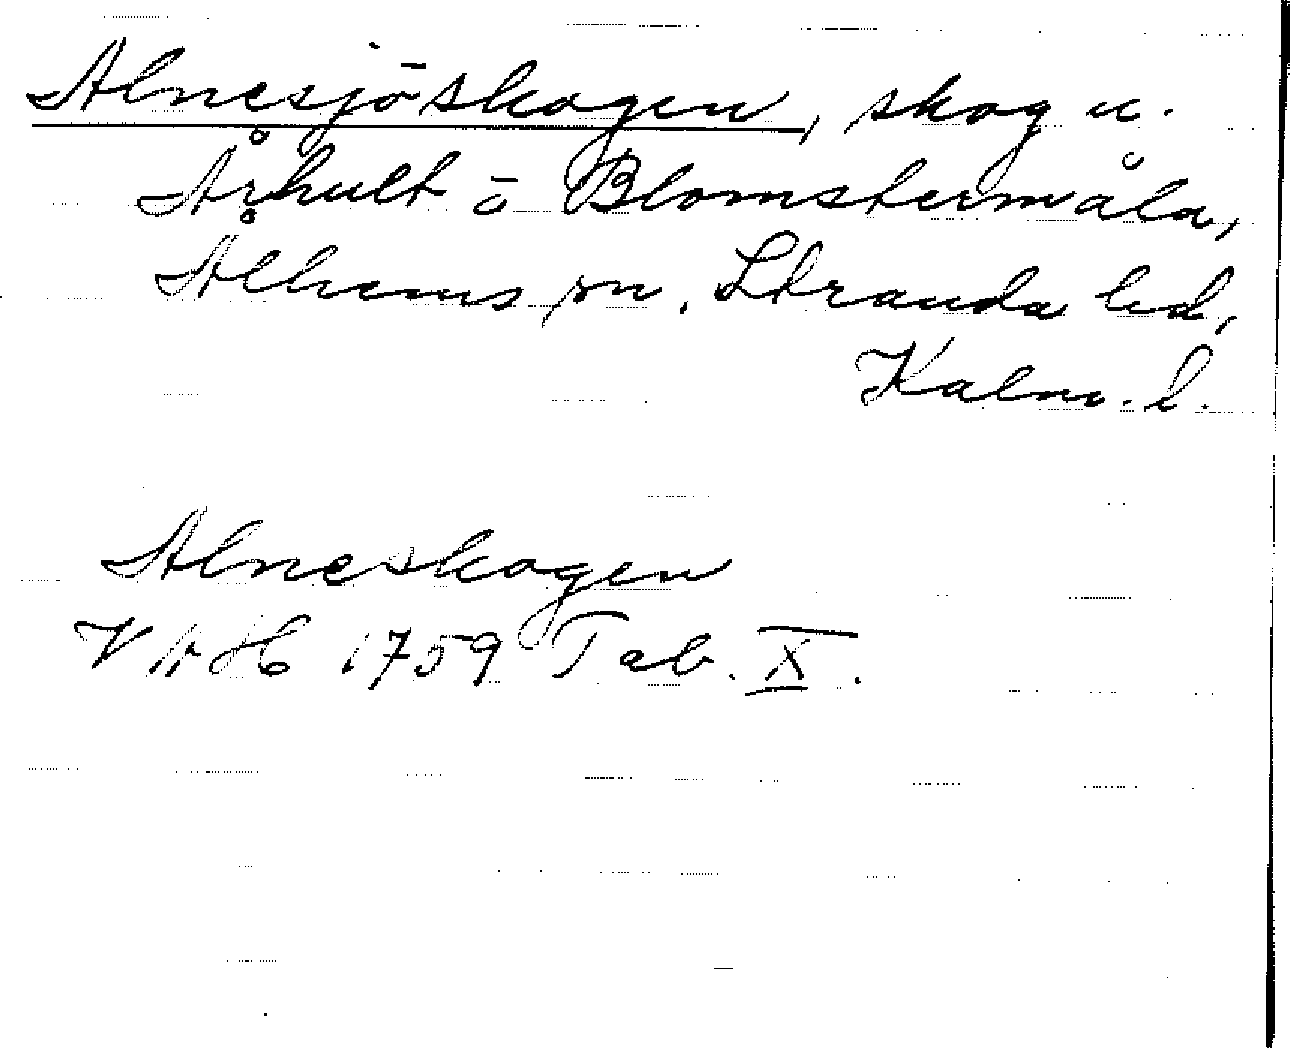 Alnesjöskogen, skog u.
Århult o Blomstermåla,
Ålhems sn. Stranda hd,
Kalm. l.
Alneskogen
VAH 1759 Tab. X.